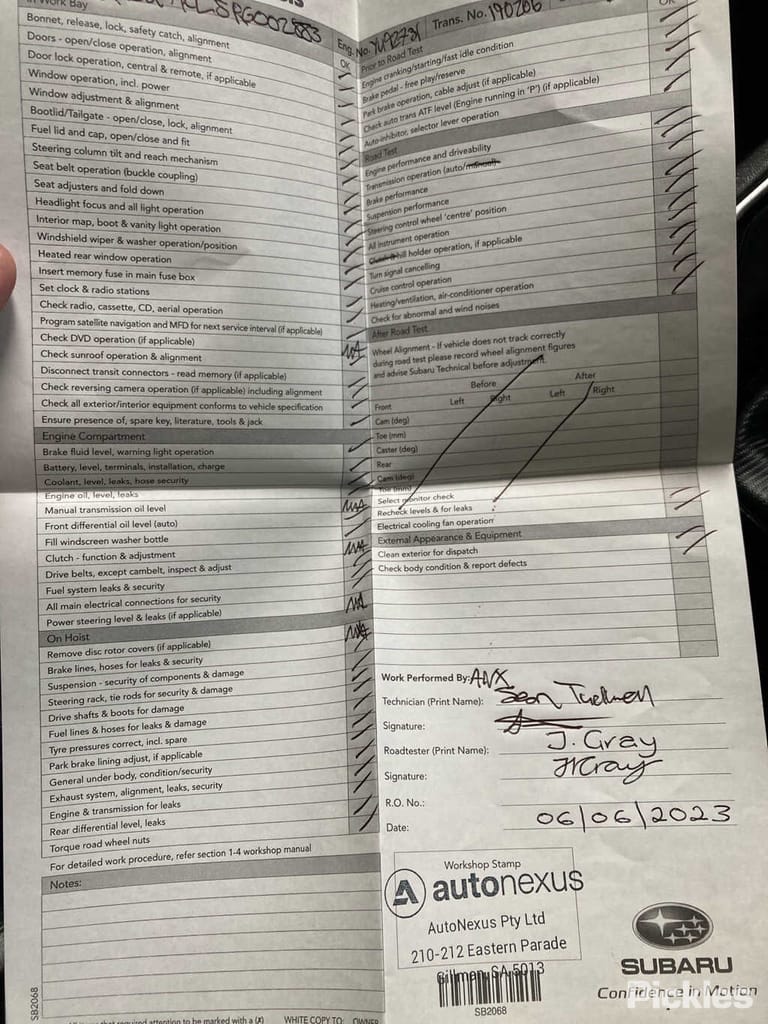 In Work Bay
Bonnet, release, lock, safety catch, alignment
Doors - open/close operation, alignment
Door lock operation, central & remote, if applicable
Window operation, incl. power
Window adjustment & alignment
Bootlid/Tailgate - open/close, lock, alignment
Fuel lid and cap, open/close and fit
Steering column tilt and reach mechanism
Seat belt operation (buckle coupling)
Seat adjusters and fold down
Headlight focus and all light operation
Interior map, boot & vanity light operation
Windshield wiper & washer operation/position
Heated rear window operation
Insert memory fuse in main fuse box
Set clock & radio stations
Check radio, cassette, CD, aerial operation
Program satellite navigation and MFD for next service interval (if applicable)
Check DVD operation (if applicable)
NA
Check sunroof operation & alignment
Disconnect transit connectors - read memory (if applicable)
Check reversing camera operation (if applicable) including alignment
Check all exterior/interior equipment conforms to vehicle specification
Ensure presence of, spare key, literature, tools & jack
Engine Compartment
Brake fluid level, warning light operation
Battery, level, terminals, installation, charge
Coolant, level, leaks, hose security
Engine oil, level, leaks
Manual transmission oil level
NA
Front differential oil level (auto)
Fill windscreen washer bottle
Clutch - function & adjustment
NA
Drive belts, except cambelt, inspect & adjust
Fuel system leaks & security
All main electrical connections for security
Power steering level & leaks (if applicable)
NA
On Hoist
Remove disc rotor covers (if applicable)
NA
Brake lines, hoses for leaks & security
Suspension - security of components & damage
Steering rack, tie rods for security & damage
Drive shafts & boots for damage
Fuel lines & hoses for leaks & damage
Tyre pressures correct, incl. spare
Park brake lining adjust, if applicable
General under body, condition/security
Exhaust system, alignment, leaks, security
Engine & transmission for leaks
Rear differential level, leaks
Torque road wheel nuts
For detailed work procedure, refer section 1-4 workshop manual
Notes:
SB2068
WHITE COPY TO: OWNER
Eng. No. Trans. No. 190206
OK
OK
Prior to Road Test
Engine cranking/starting/fast idle condition
Brake pedal - free play/reserve
Park brake operation, cable adjust (if applicable)
Check auto trans ATF level (Engine running in 'P') (if applicable)
Auto-inhibitor, selector lever operation
Road Test
Engine performance and driveability
Transmission operation (auto/manual)
Brake performance
Suspension performance
Steering control wheel 'centre' position
All instrument operation
hill holder operation, if applicable
Turn signal cancelling
Cruise control operation
Heating/ventilation, air-conditioner operation
Check for abnormal and wind noises
After Road Test
Wheel Alignment - If vehicle does not track correctly
during road test please record wheel alignment figures
and advise Subaru Technical before adjustment.
Before After
Front Left Right Left Right
Cam (deg)
Toe (mm)
Caster (deg)
Rear
Cam (deg)
Toe (mm)
Select monitor check
Recheck levels & for leaks
Electrical cooling fan operation
External Appearance & Equipment
Clean exterior for dispatch
Check body condition & report defects
Work Performed By: ANX
Technician (Print Name): Sean
Signature:
Roadtester (Print Name): J. Gray
Signature: JGray
R.O. No.:
Date: 06/06/2023
Workshop Stamp
autonexus
AutoNexus Pty Ltd
210-212 Eastern Parade
Gillman, SA 5013
SB2068
SUBARU
Confidence in Motion
Pickles